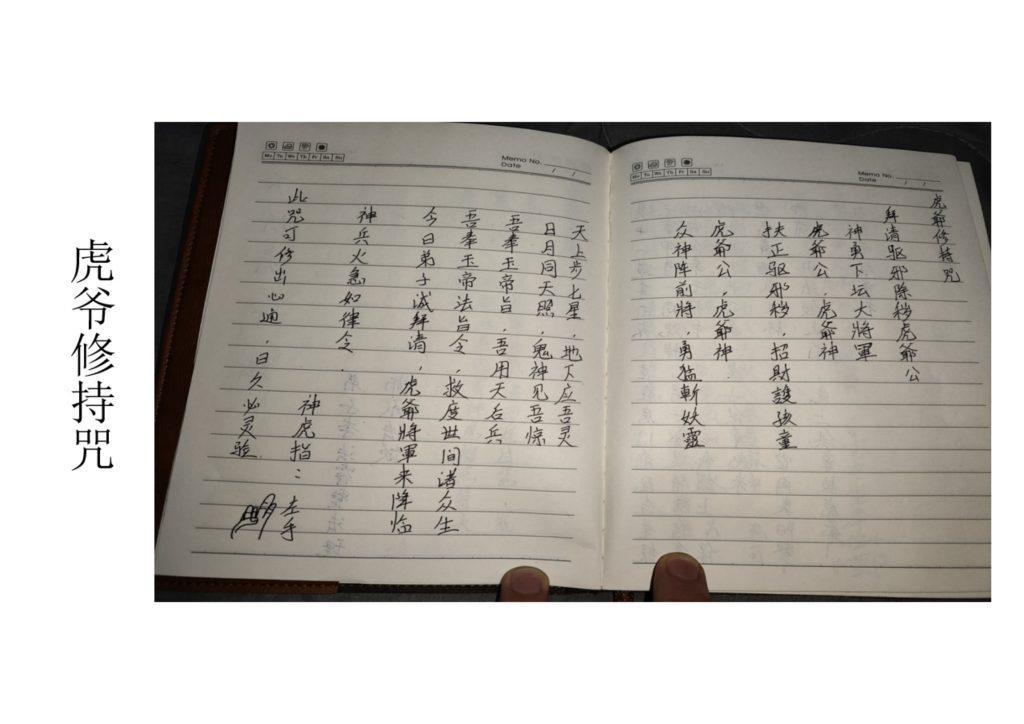 虎爷修持咒
虎爺修持咒
拜请驱邪除秽虎爺公
神勇下坛大將軍
虎爺公．虎爺神
扶正驱邪秽，招財護孩童
虎爺公，虎爺神
众神阵前將，勇猛斬妖靈
天上步七星，地下应吾灵
日月同天照，鬼神见吾惊
吾奉玉帝旨，吾用天后兵
吾奉玉帝法旨令，救度世间诸众生
今日弟子诚拜请，虎爺將軍来降临
神兵火急如律令．
此咒可修出心通，日久必灵验
神虎指：左手
Memo No.
Date / /
Mo Tu We Th Fr Sa Su
Memo No.
Date / /
Mo Tu We Th Fr Sa Su